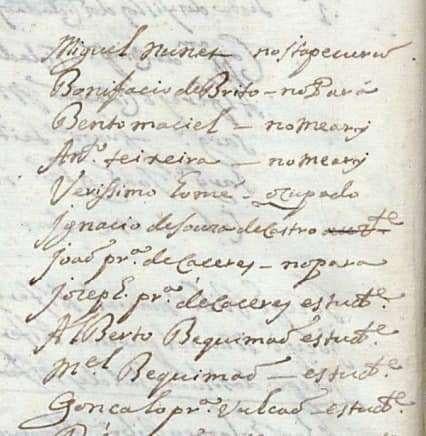 Miguel nunes – no itapecurú
Bonifacio de Brito – no Pará
Bento maciel – no mearỹ
Ant.º teixeira – no mearỹ
Verissimo Tomé – ocupado
Ignacio de Souza de Castro
Joaõ pr.ª de Caceres – no para
Joseph pr.ª de Caceres estud.te
Alberto Bequimaõ estud.te
Mel Bequimaõ – estud.te
Goncalo pr.ª Vulcaõ – estud.te